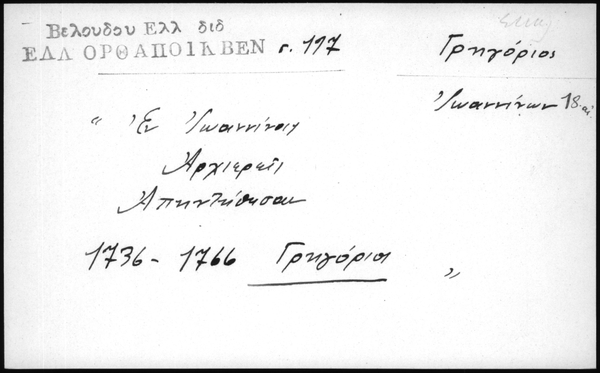 Βελουδου Ελλ διδ
ΕΛΛ ΟΡΘ ΑΠΟΙΚ ΒΕΝ σ. 197
Γρηγόριος
Ἰωαννίνων 18. αἰ.
“ Ἐν Ἰωαννίνοις
Ἀρχιερεῖς
Ἀπηντήθησαν
1736 - 1766 Γρηγόριος ”